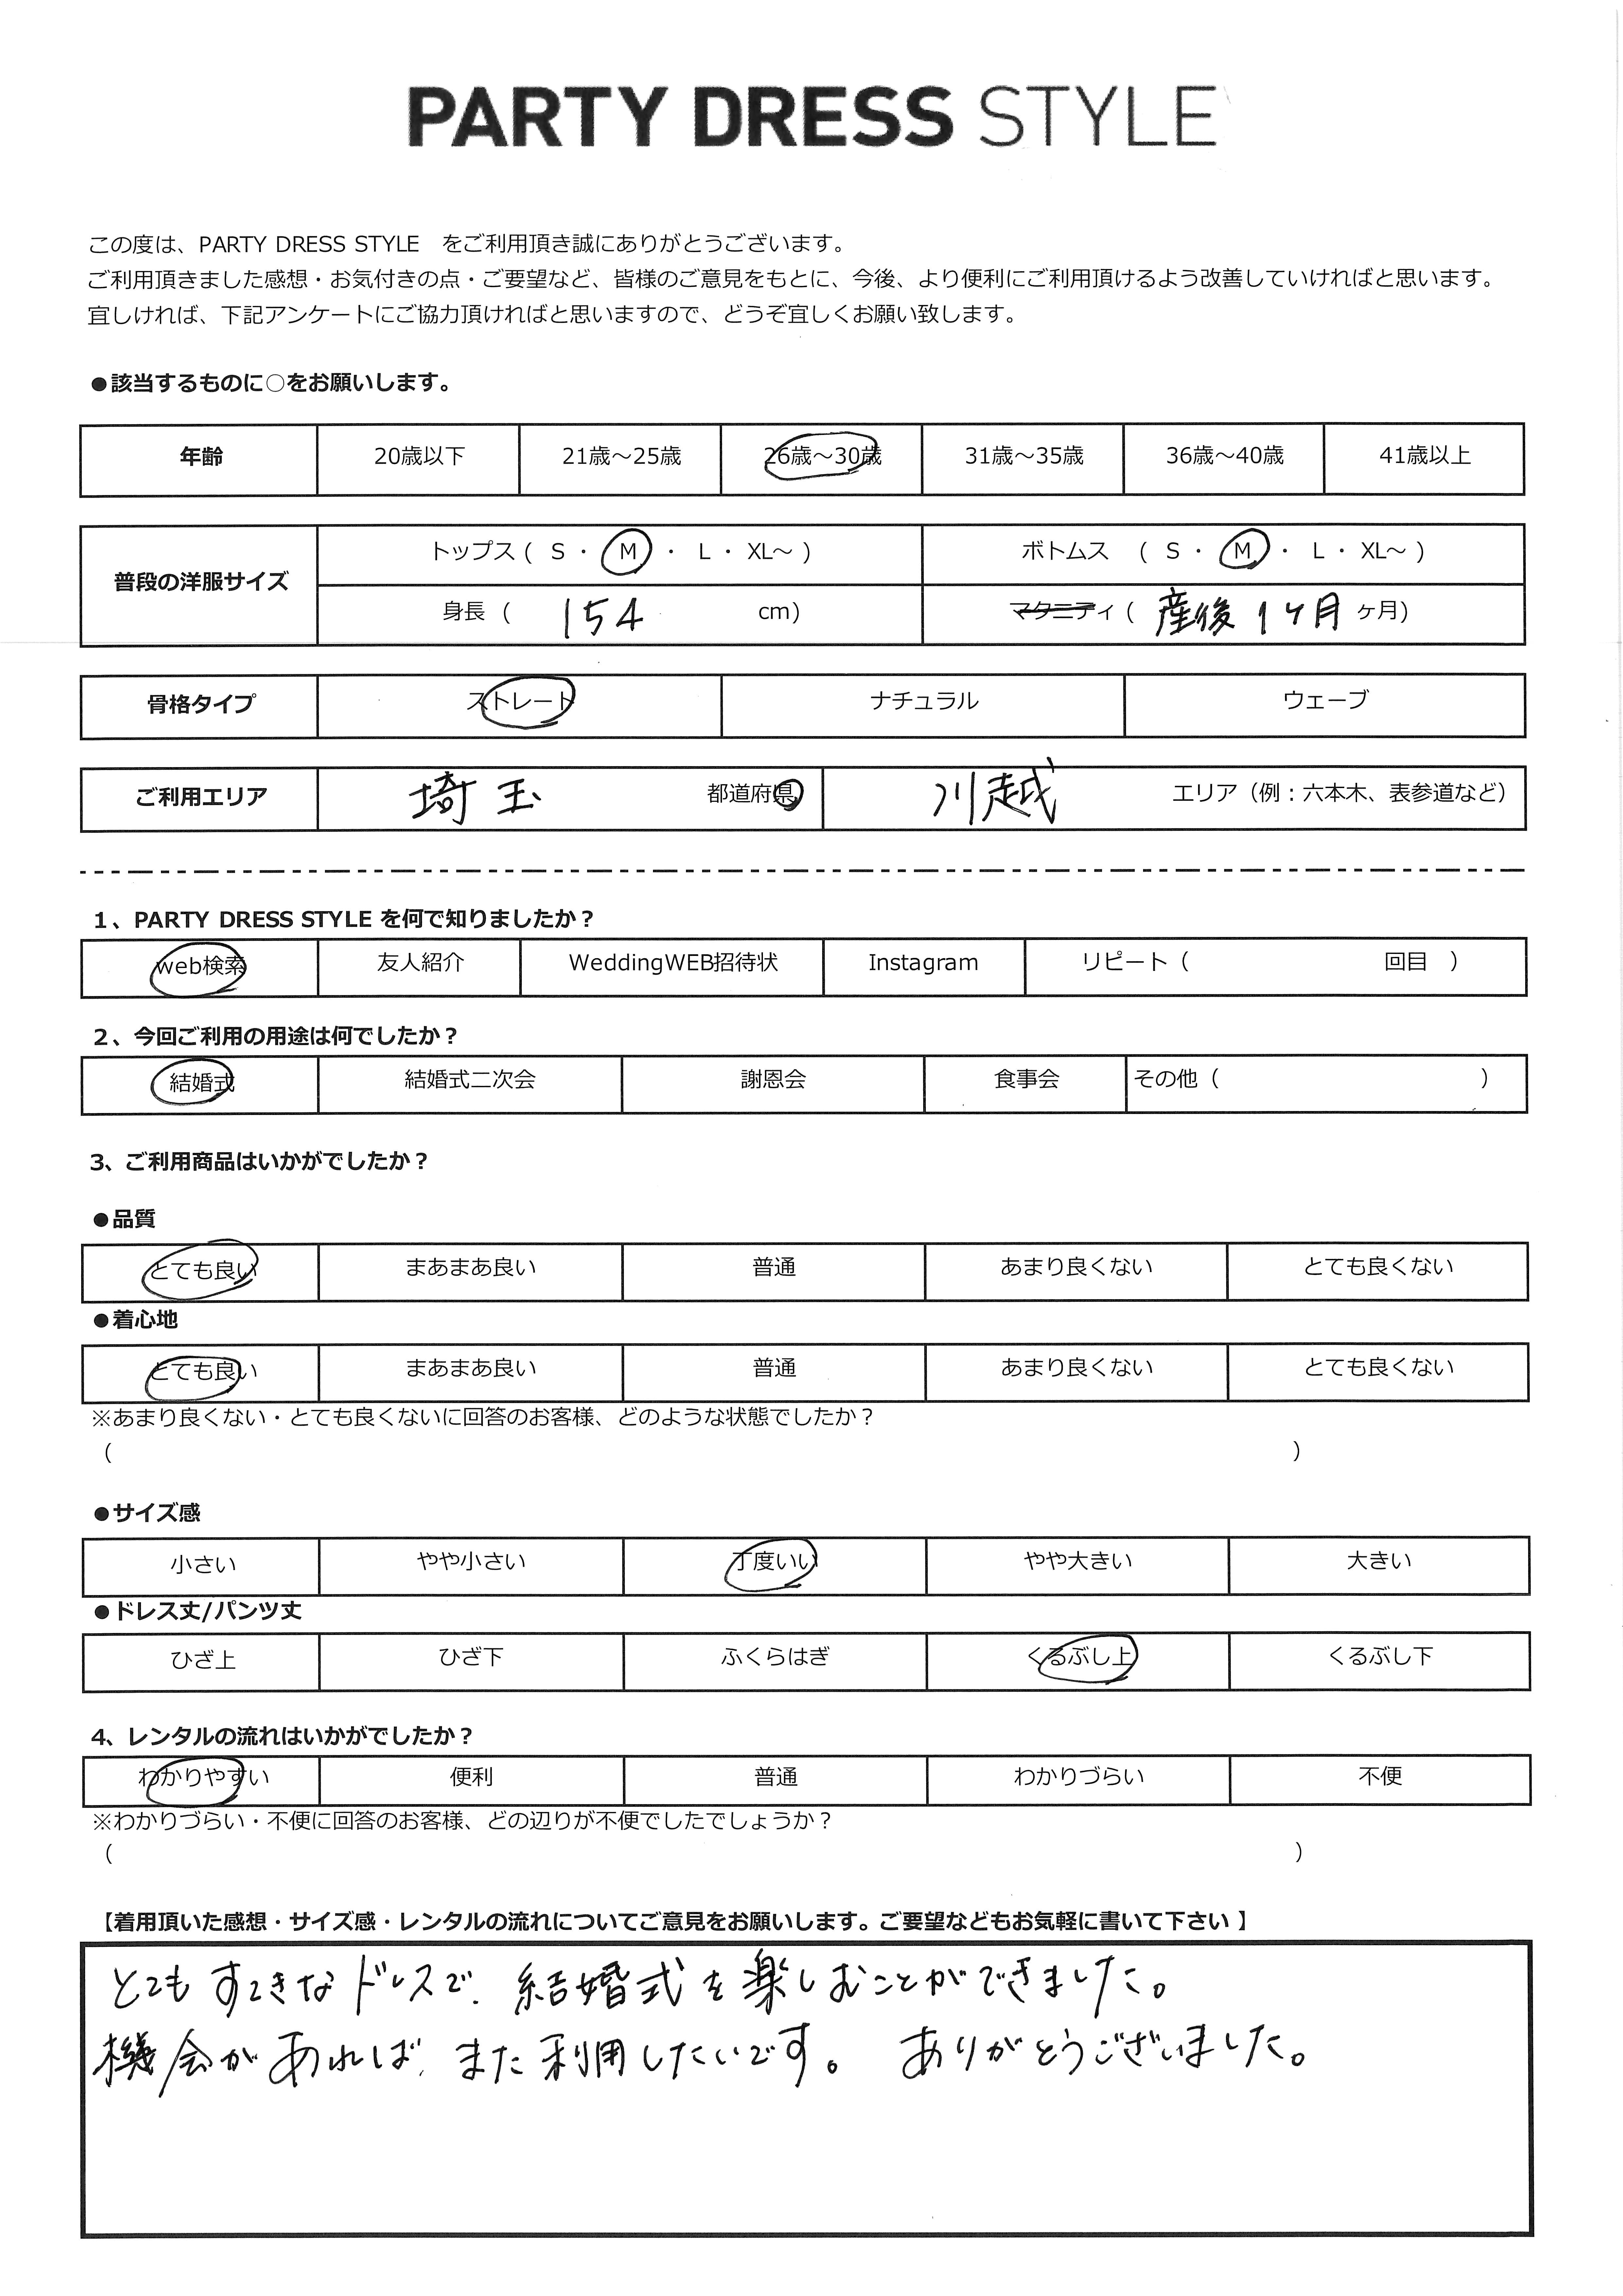 PARTY DRESS STYLE
この度は、PARTY DRESS STYLE　をご利用頂き誠にありがとうございます。
ご利用頂きました感想・お気付きの点・ご要望など、皆様のご意見をもとに、今後、より便利にご利用頂けるよう改善していければと思います。
宜しければ、下記アンケートにご協力頂ければと思いますので、どうぞ宜しくお願い致します。
●該当するものに○をお願いします。
年齢 20歳以下 21歳～25歳 26歳～30歳 31歳～35歳 36歳～40歳 41歳以上
普段の洋服サイズ トップス ( S ・ M ・ L ・ XL～ ) ボトムス ( S ・ M ・ L ・ XL～ )
身長 ( 154 cm) マタニティ ( 産後 1ヶ月 ヶ月)
骨格タイプ ストレート ナチュラル ウェーブ
ご利用エリア 埼玉 都道府県 川越 エリア（例：六本木、表参道など）
1、PARTY DRESS STYLE を何で知りましたか？
web検索 友人紹介 WeddingWEB招待状 Instagram リピート（ 回目 ）
2、今回ご利用の用途は何でしたか？
結婚式 結婚式二次会 謝恩会 食事会 その他（ ）
3、ご利用商品はいかがでしたか？
●品質
とても良い まあまあ良い 普通 あまり良くない とても良くない
●着心地
とても良い まあまあ良い 普通 あまり良くない とても良くない
※あまり良くない・とても良くないに回答のお客様、どのような状態でしたか？
（ ）
●サイズ感
小さい やや小さい 丁度いい やや大きい 大きい
●ドレス丈/パンツ丈
ひざ上 ひざ下 ふくらはぎ くるぶし上 くるぶし下
4、レンタルの流れはいかがでしたか？
わかりやすい 便利 普通 わかりづらい 不便
※わかりづらい・不便に回答のお客様、どの辺りが不便でしたでしょうか？
（ ）
【着用頂いた感想・サイズ感・レンタルの流れについてご意見をお願いします。ご要望などもお気軽に書いて下さい 】
とても すてきな ドレスで、結婚式を楽しむことができました。
機会があれば、また利用したいです。 ありがとうございました。